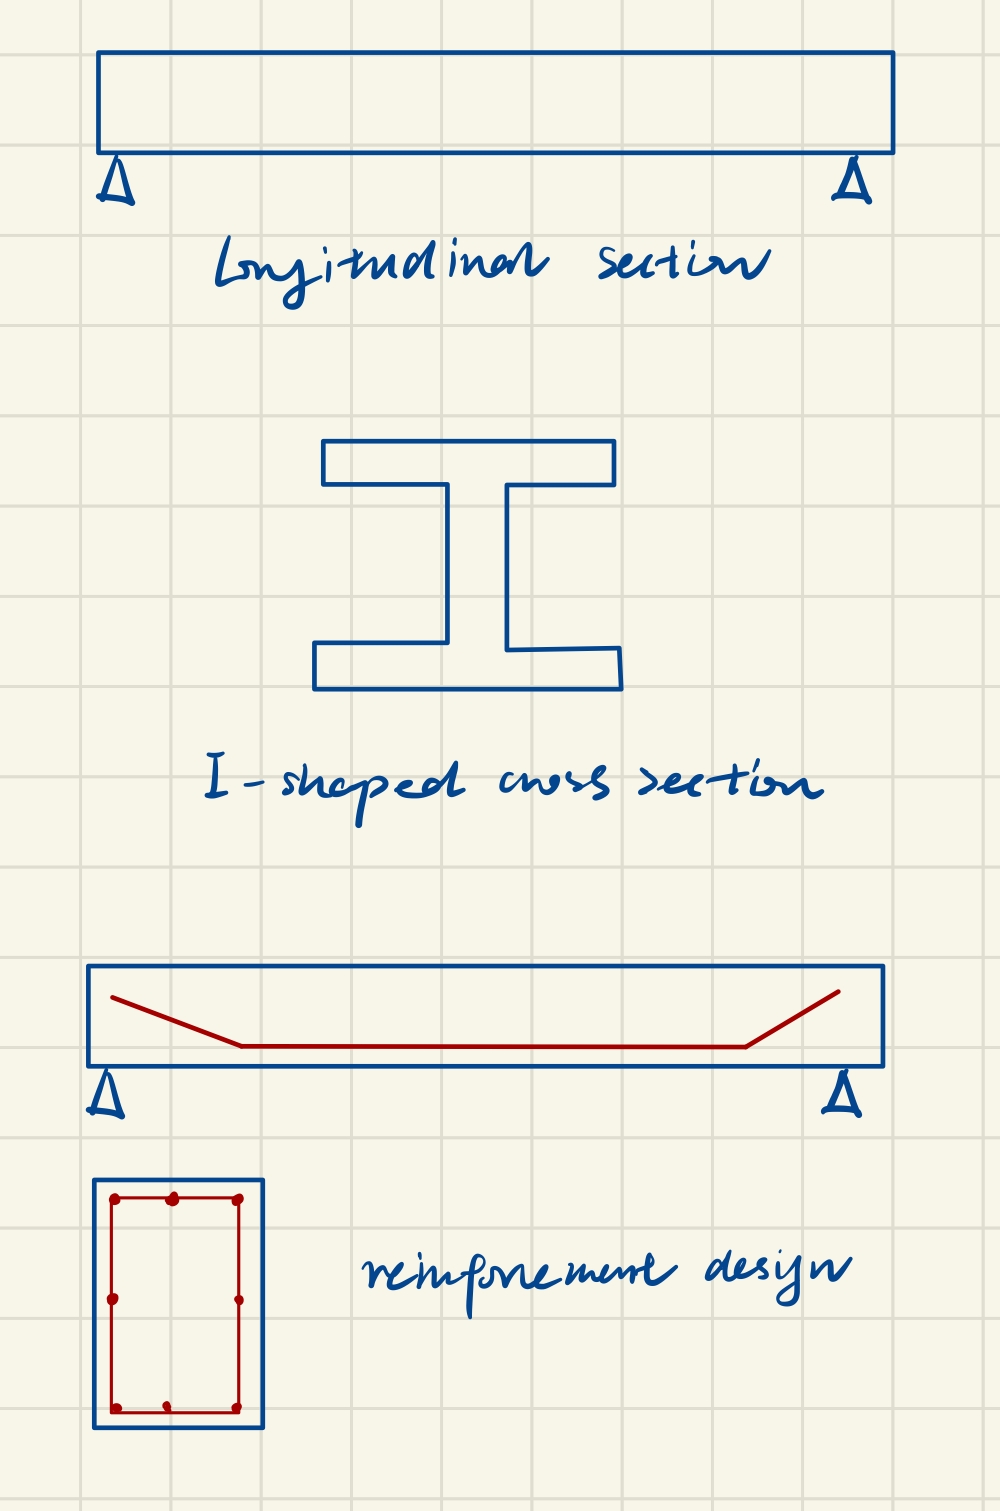 Longitudinal section
I-shaped cross section
reinforcement design